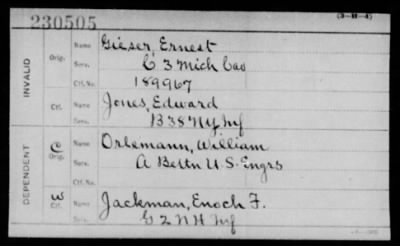 230505 (3-111-4)
INVALID
Orig. Name Gieser, Ernest
Serv. C 3 Mich Cav
Ctf. No. 189967
Ctf. Name Jones, Edward
Serv. B 38 NY Inf
DEPENDENT
C Orig. Name Orlemann, William
Serv. A Battn U.S. Engrs
Ctf. No.
W Ctf. Name Jackman, Enoch F.
Serv. G 2 N H Inf